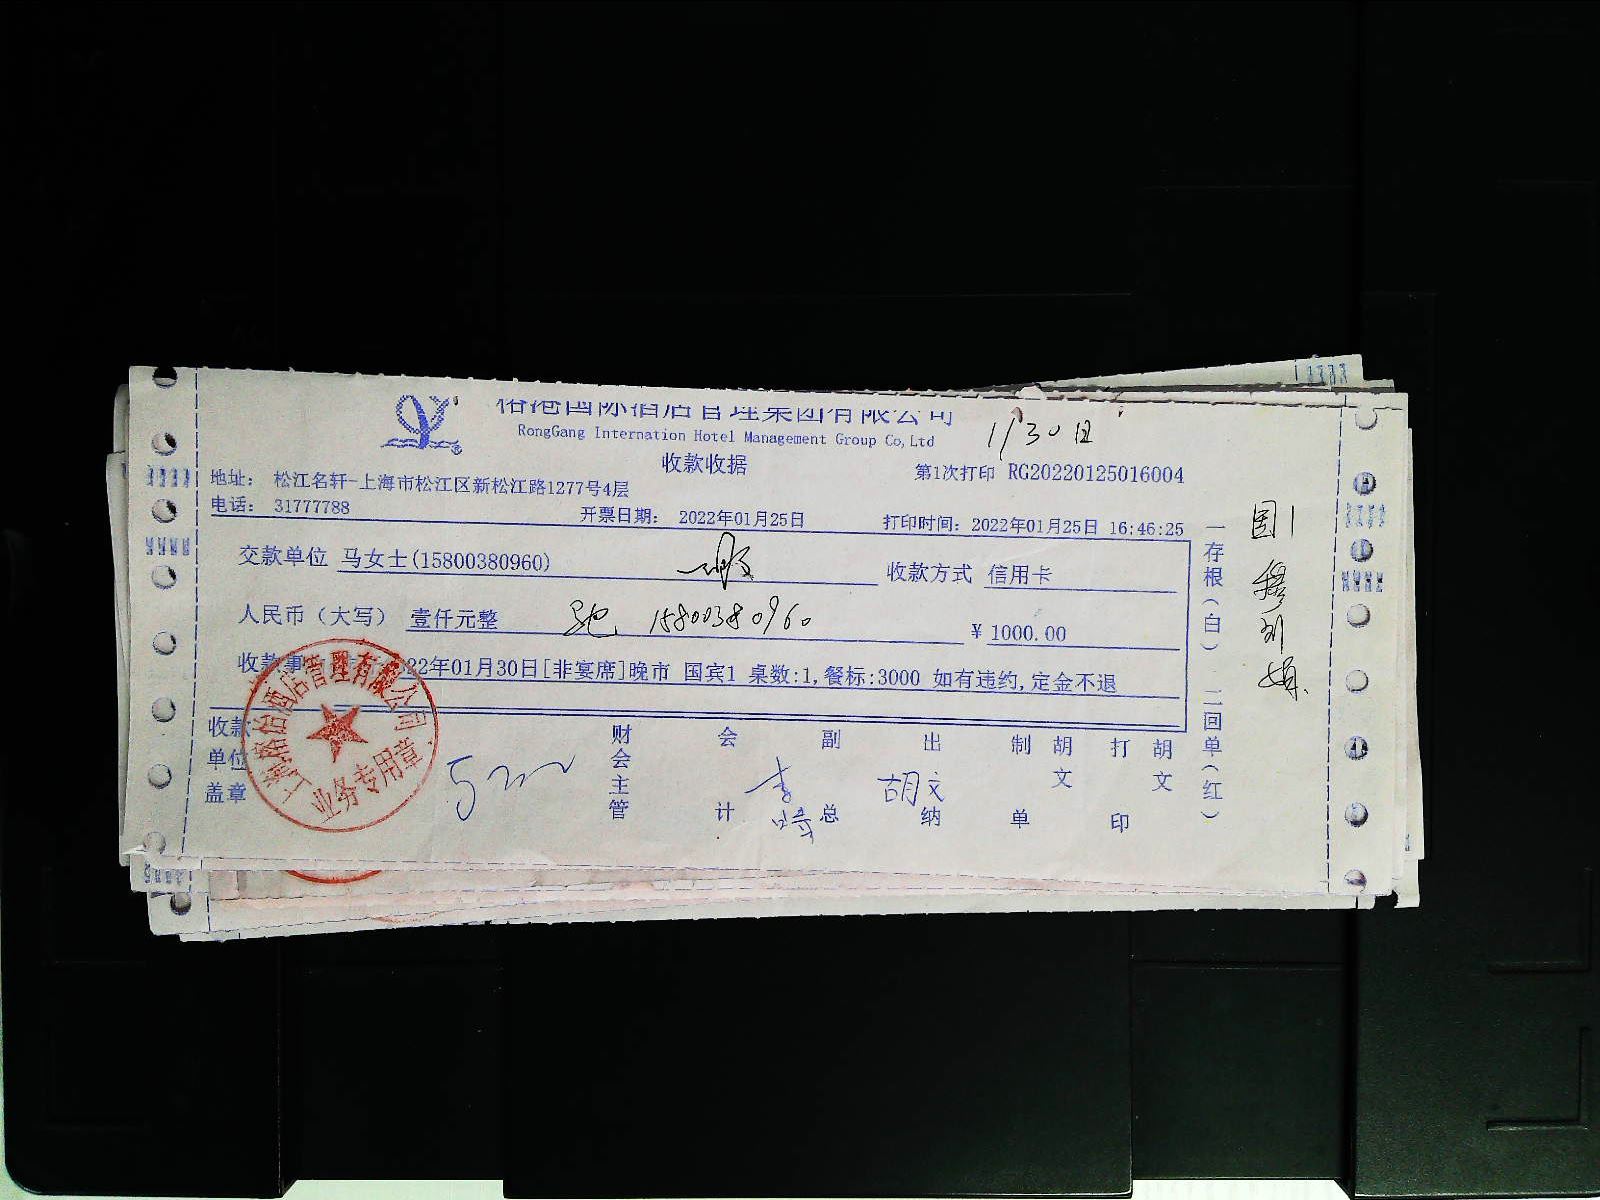 榕港国际酒店管理集团有限公司
RongGang Internation Hotel Management Group Co,Ltd
1/30日
收款收据
第1次打印 RG20220125016004
地址: 松江名轩-上海市松江区新松江路1277号4层
电话: 31777788
开票日期: 2022年01月25日
打印时间: 2022年01月25日 16:46:25
交款单位 马女士(15800380960)
收款方式 信用卡
人民币（大写） 壹仟元整
15800380960
¥ 1000.00
收款事 22年01月30日[非宴席]晚市 国宾1 桌数:1,餐标:3000 如有违约,定金不退
收款单位盖章
财会主管
会计
李
副总
出纳
胡文
制单
胡文
打印
胡文
业务专用章
一存根（白） 二回单（红）
国1